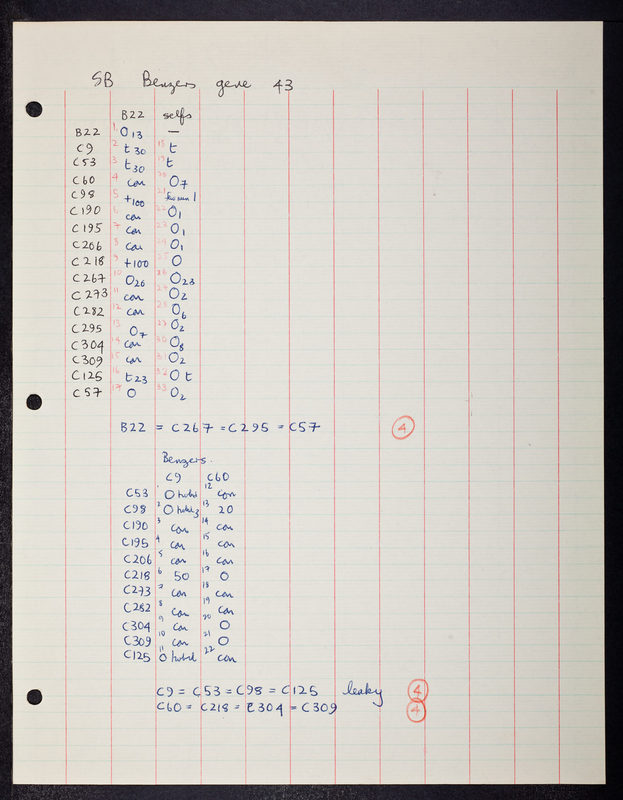 SB Benzers gene 43
B22 selfs
B22 1 O13 —
C9 2 t30 18 t
C53 3 t30 19 t
C60 4 con 20 O7
C98 5 +100 21 1
C190 6 con 22 O1
C195 7 con 23 O1
C206 8 con 24 O1
C218 9 +100 25 O
C267 10 O26 26 O23
C273 11 con 27 O2
C282 12 con 28 O6
C295 13 O7 29 O2
C304 14 con 30 O8
C309 15 con 31 O2
C125 16 t23 32 O t
C57 17 O 33 O2
B22 = C267 = C295 = C57 4
Benzers.
C9 C60
C53 1 O 12 con
C98 2 O 13 20
C190 3 con 14 con
C195 4 con 15 con
C206 5 con 16 con
C218 6 50 17 O
C273 7 con 18 con
C282 8 con 19 con
C304 9 con 20 O
C309 10 con 21 O
C125 11 O 22 con
C9 = C53 = C98 = C125 leaky 4
C60 = C218 = C304 = C309 4